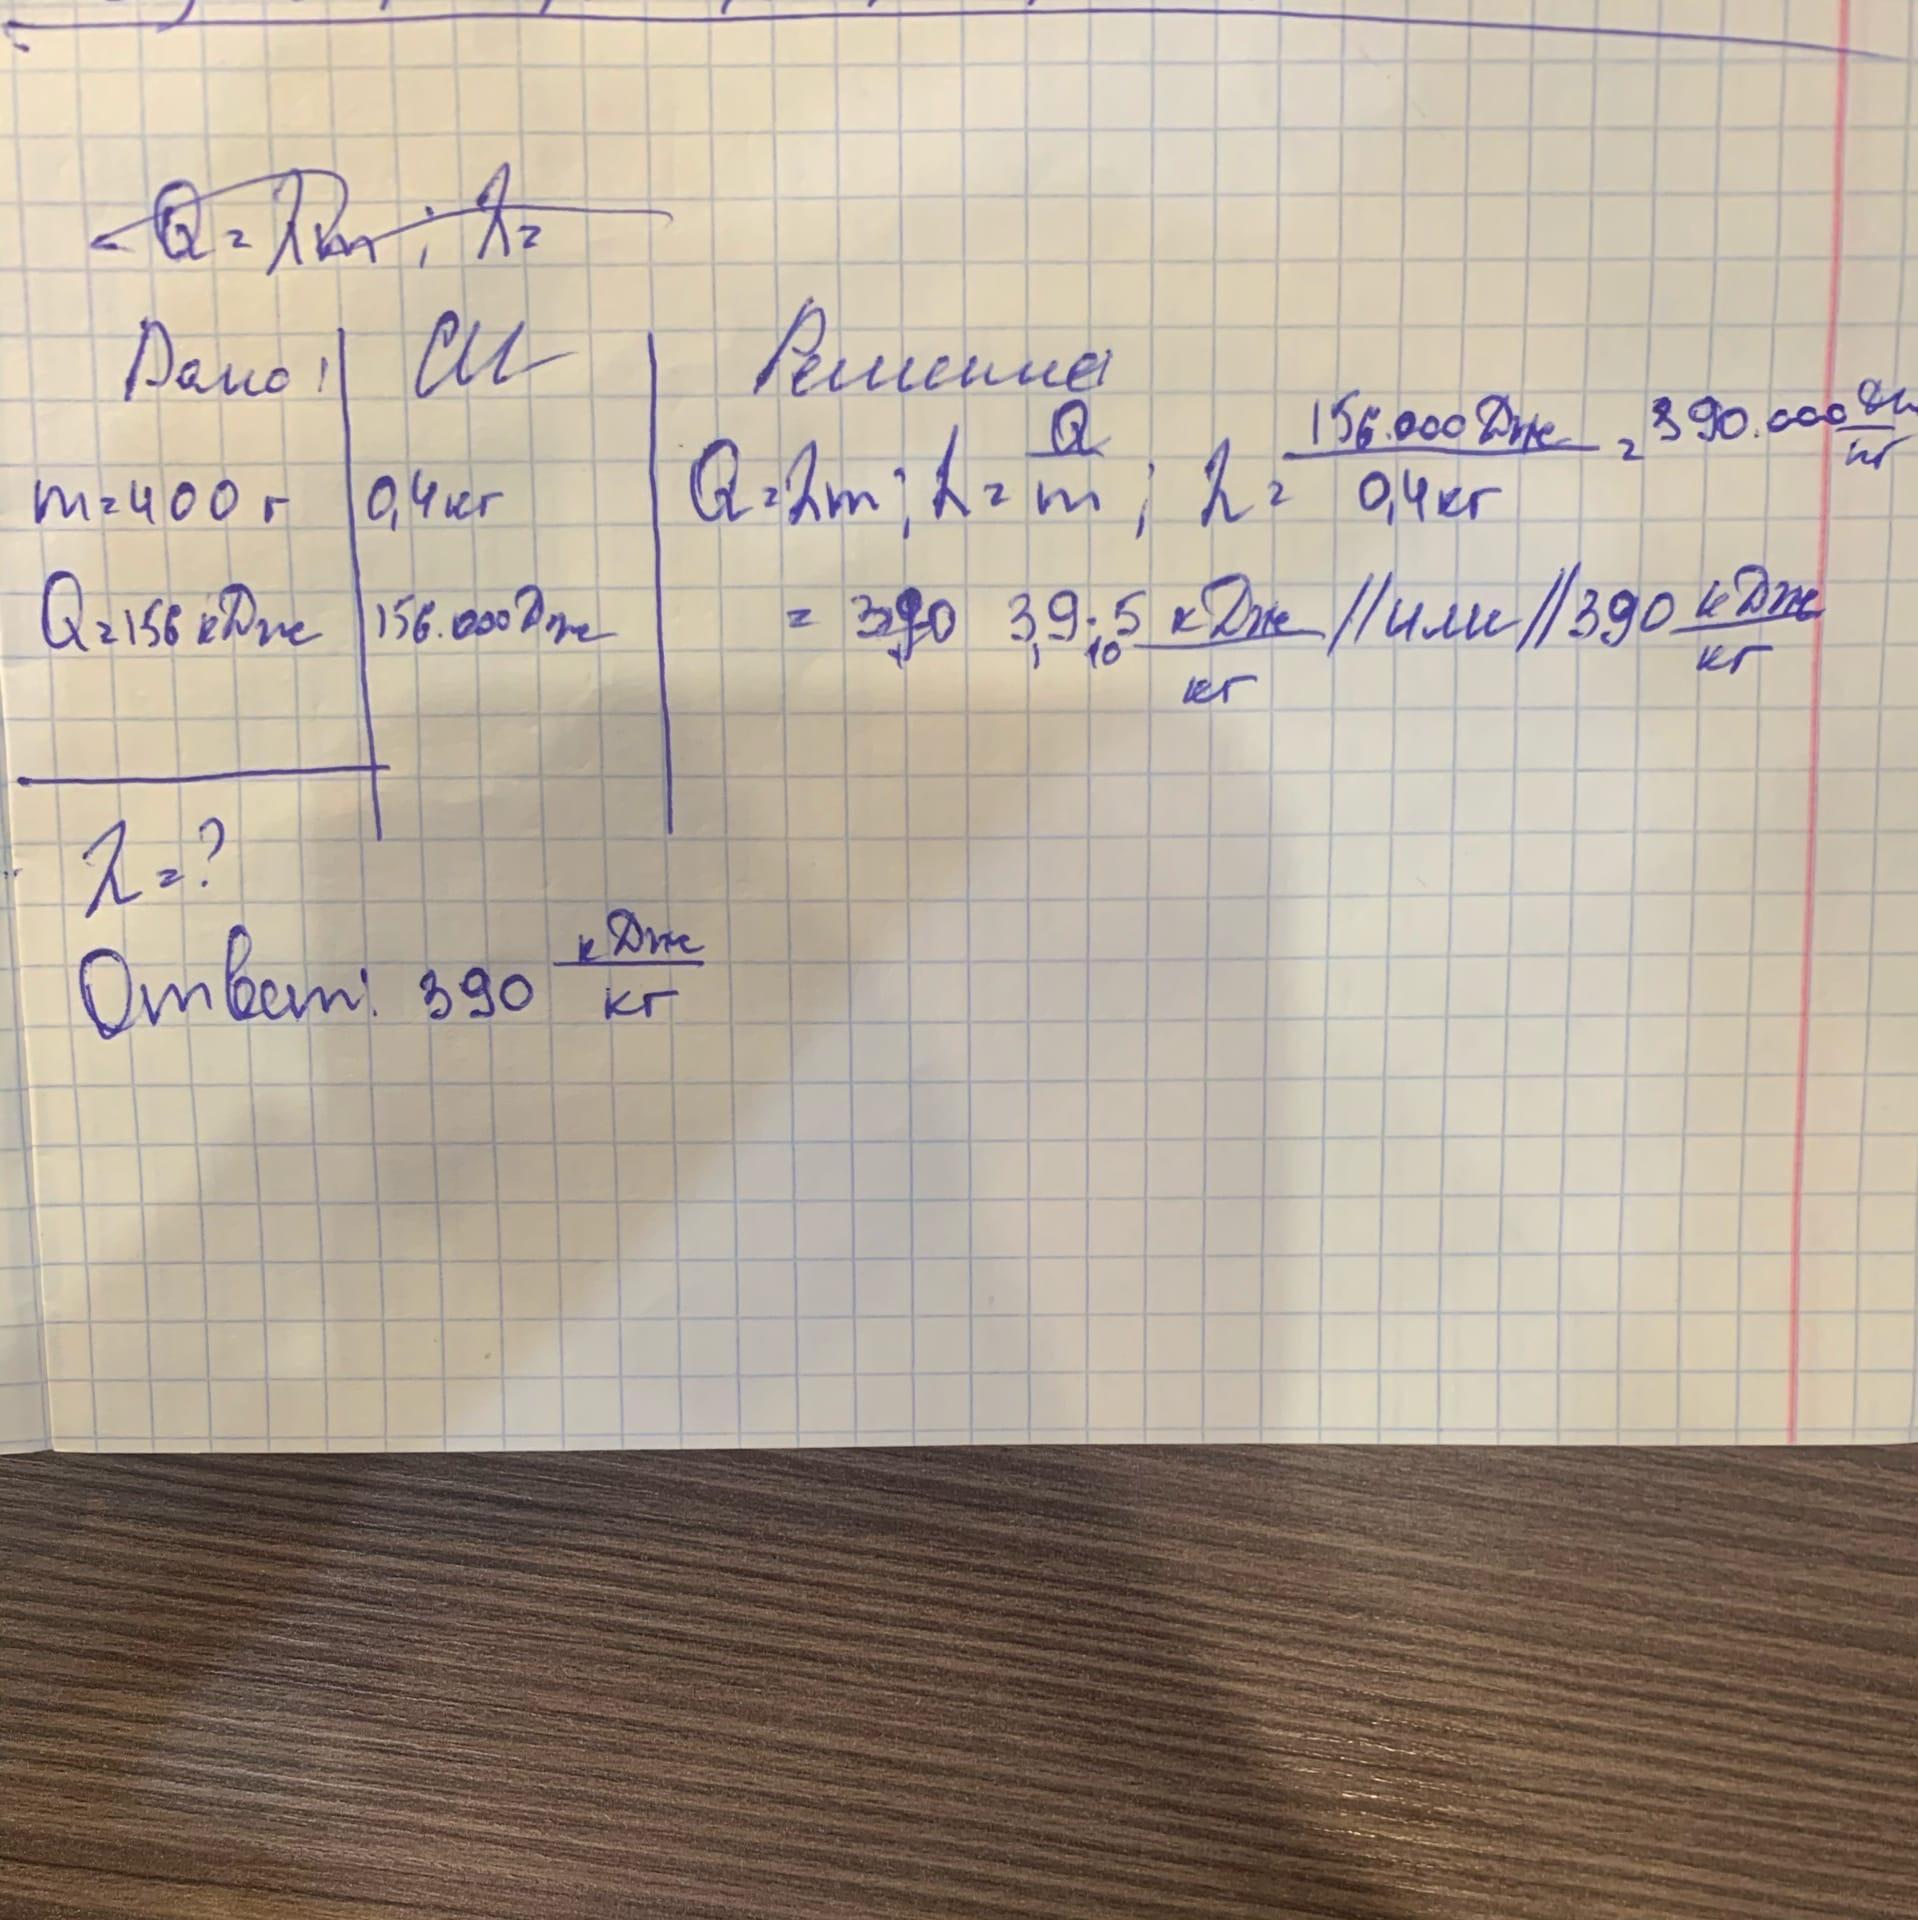 Q = λm ; λ =
Дано: СИ Решение
m = 400 г 0,4 кг Q = λm ; λ = Q/m ; λ = 156.000 Дж / 0,4 кг = 390.000 Дж/кг
Q = 156 кДж 156.000 Дж = 390 3,9·10 5 кДж/кг //или// 390 кДж/кг
λ = ?
Ответ: 390 кДж/кг